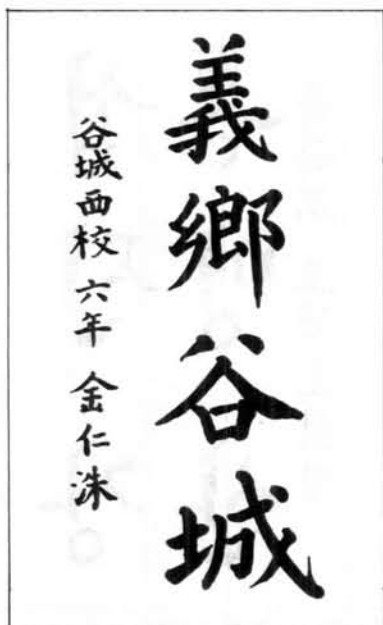 義鄉谷城
谷城西校 六年 金仁洙